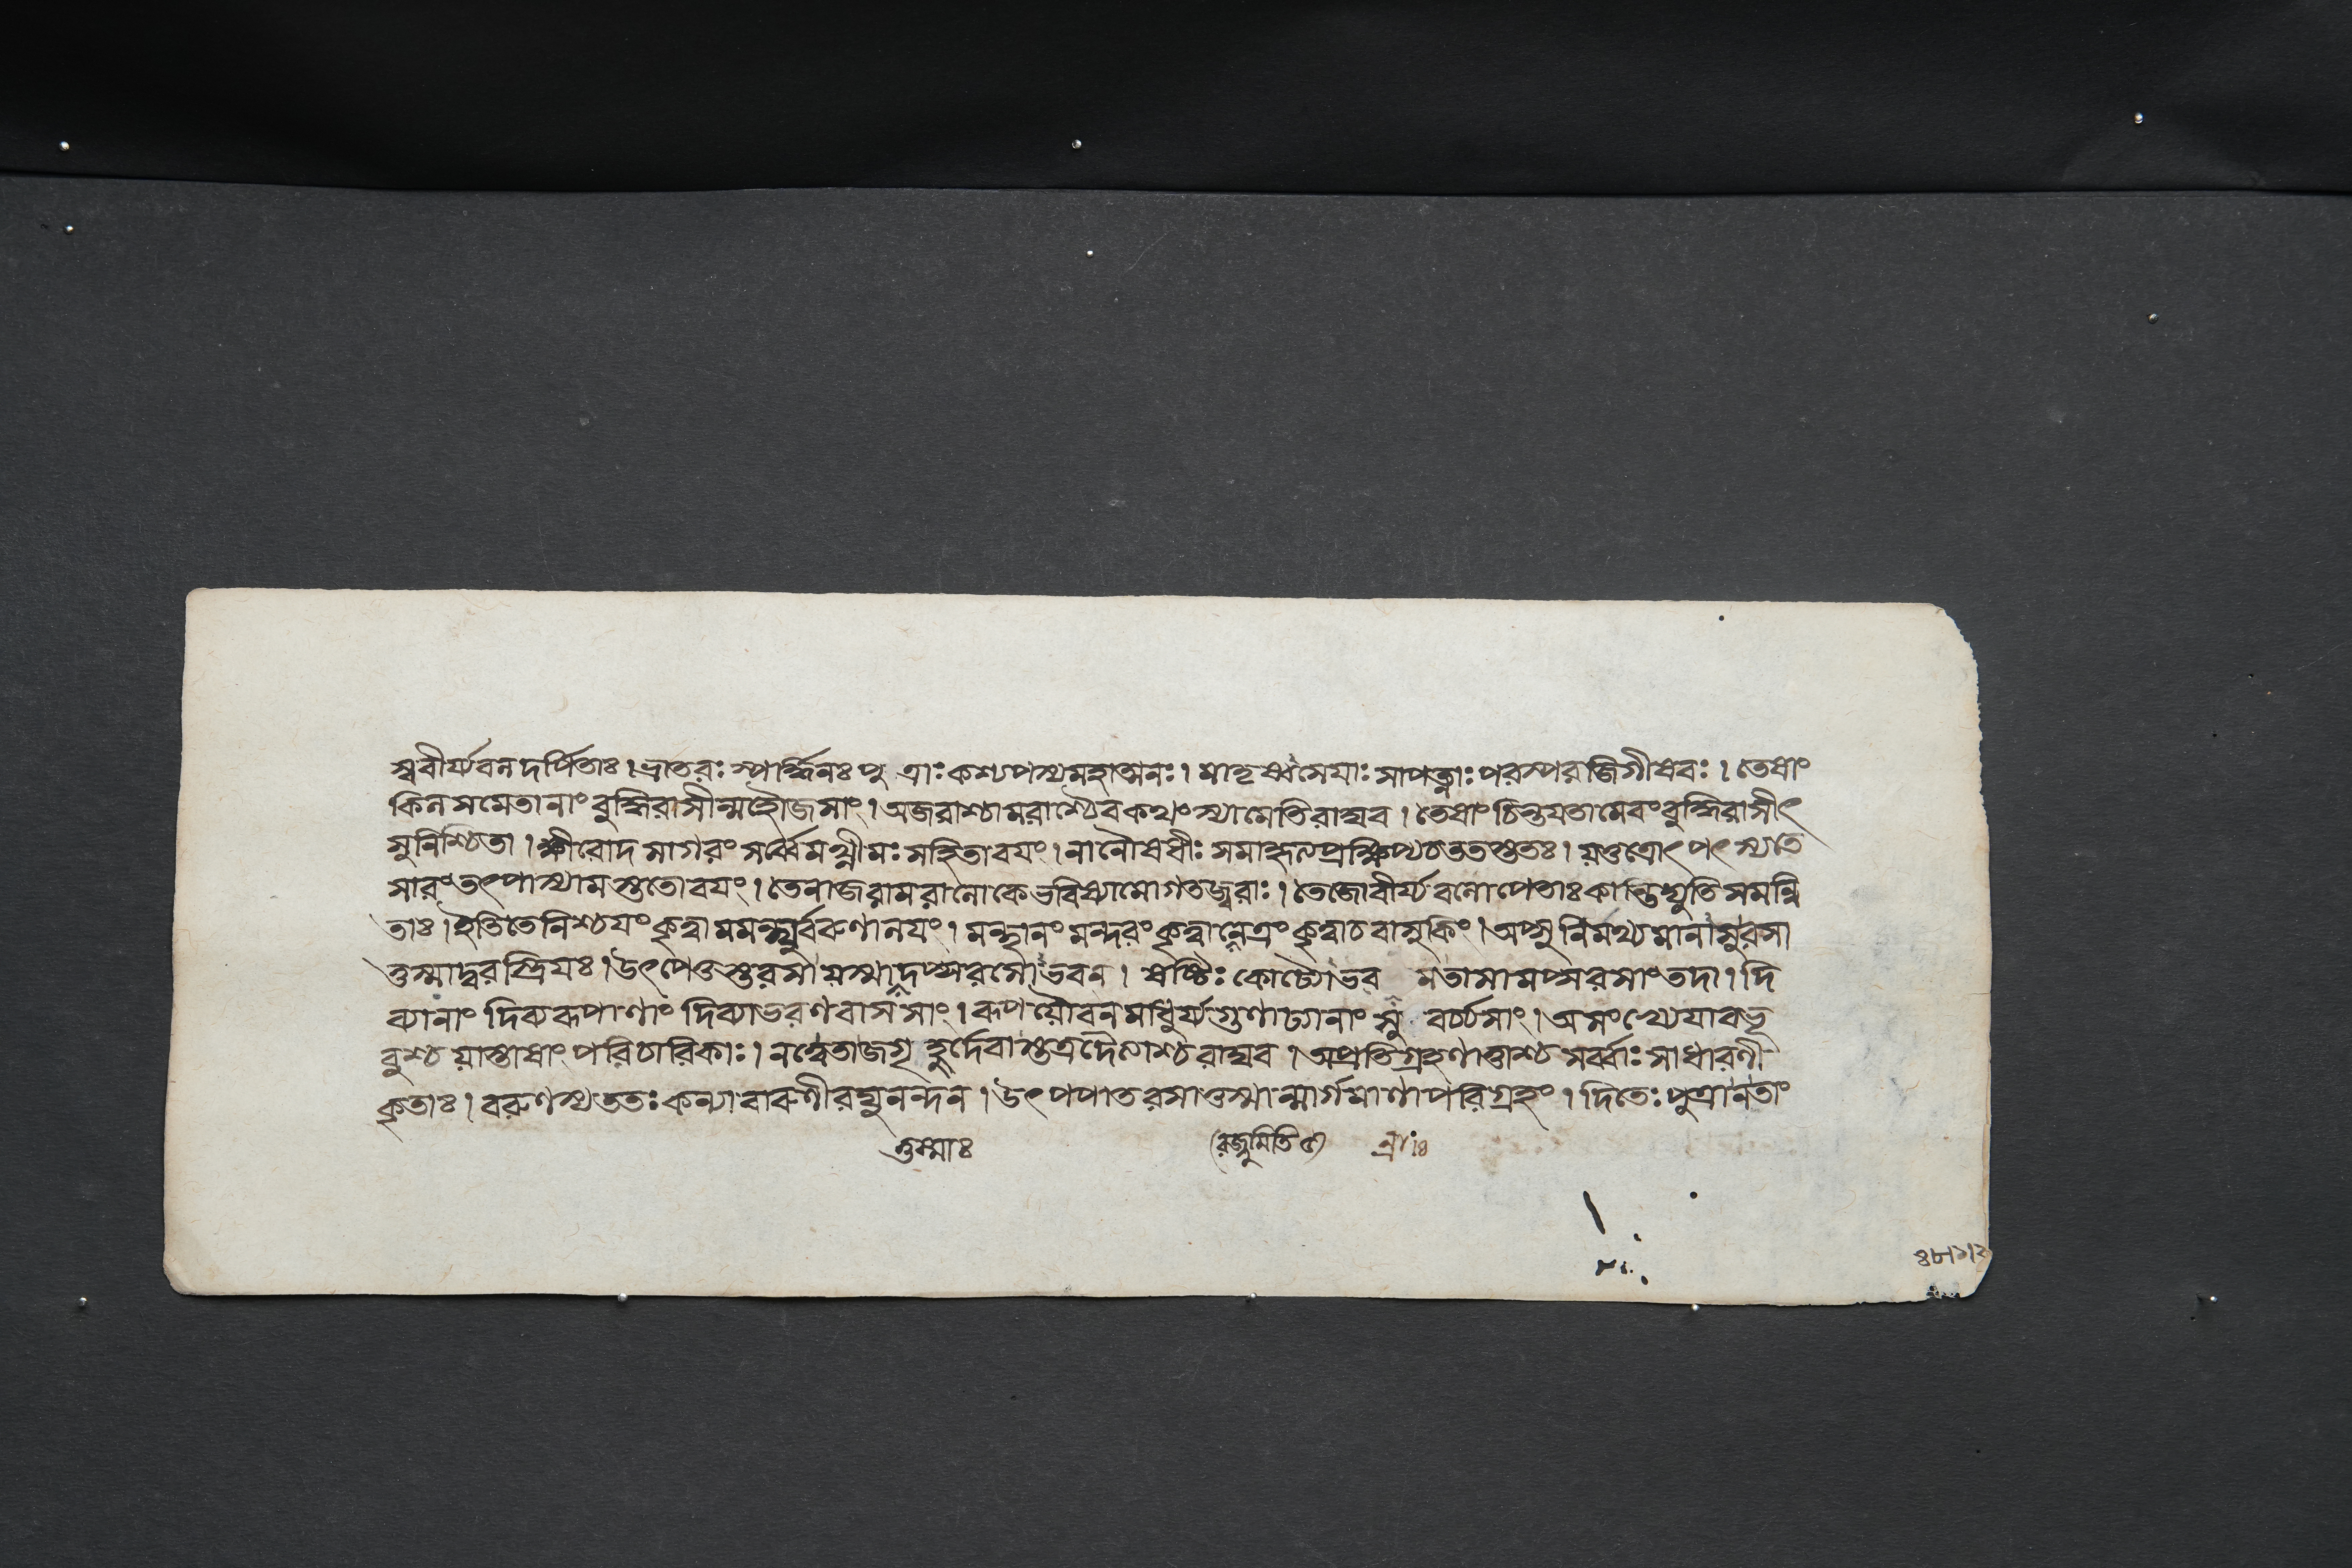 স্ববীর্য্যবলদর্পিতাঃ। ভ্রাতরঃ স্পর্দ্ধিনঃ পুত্রাঃ কশ্যপস্য মহাত্মনঃ। মাতৃষ্বস্রেয়াঃ সাপত্ন্যাঃ পরস্পরজিগীষবঃ। তেষাং
কিল সমেতানাং বুদ্ধিরাসীন্মহৌজসাং। অজরাশ্চামরাশ্চৈব কথং স্যামেতি রাঘব। তেষাং চিন্তয়তামেবং বুদ্ধিরাসীৎ
সুনিশ্চিতা। ক্ষীরোদসাগরং সর্ব্বে মথ্নীমঃ সহিতা বয়ং। নানৌষধীঃ সমাহৃত্য প্রক্ষিপ্য চ ততস্ততঃ। যত্তত্রোৎপৎস্যতে
সারং তৎপাস্যামস্ততো বয়ং। তেনাজরামরা লোকে ভবিষ্যামো গতজ্বরাঃ। তেজোবীর্য্যবলোপেতাঃ কান্তিদ্যুতিসমন্বি
তাঃ। ইতি তে নিশ্চয়ং কৃত্বা মমন্থুর্ব্বরুণালয়ং। মন্থানং মন্দরং কৃত্বা নেত্রং কৃত্বা চ বাসুকিং। অপ্সু নির্মথ্যমানাসু রসা
ত্তস্মাদ্বরস্ত্রিয়ঃ। উৎপেতুস্তু রসা যস্মাদপ্সরসোঽভবন। ষষ্টিঃ কোট্যোঽভব ন্নতাসামপ্সরসাং তদা। দি
ব্যানাং দিব্যরূপাণাং দিব্যাভরণবাসসাং। রূপযৌবনমাধুর্য্যগুণাঢ্যানাং সু বর্চ্চসাং। অসংখ্যেয়া বভূ
বুশ্চ যাস্তাসাং পরিচারিকাঃ। নত্বেতা জগৃ হুর্দেবাস্তত্র দৈত্যাশ্চ রাঘব। অপ্রতিগ্রহণাত্তাশ্চ সর্ব্বাঃ সাধারণী
কৃতাঃ। বরুণস্য ততঃ কন্যা বারুণী রঘুনন্দন। উৎপপাত রসাত্তস্মান্মার্গমাণা পরিগ্রহং। দিতেঃ পুত্রা ন তাং
তস্মাঃ
রজ্জুমিতি
৪৮।১।২